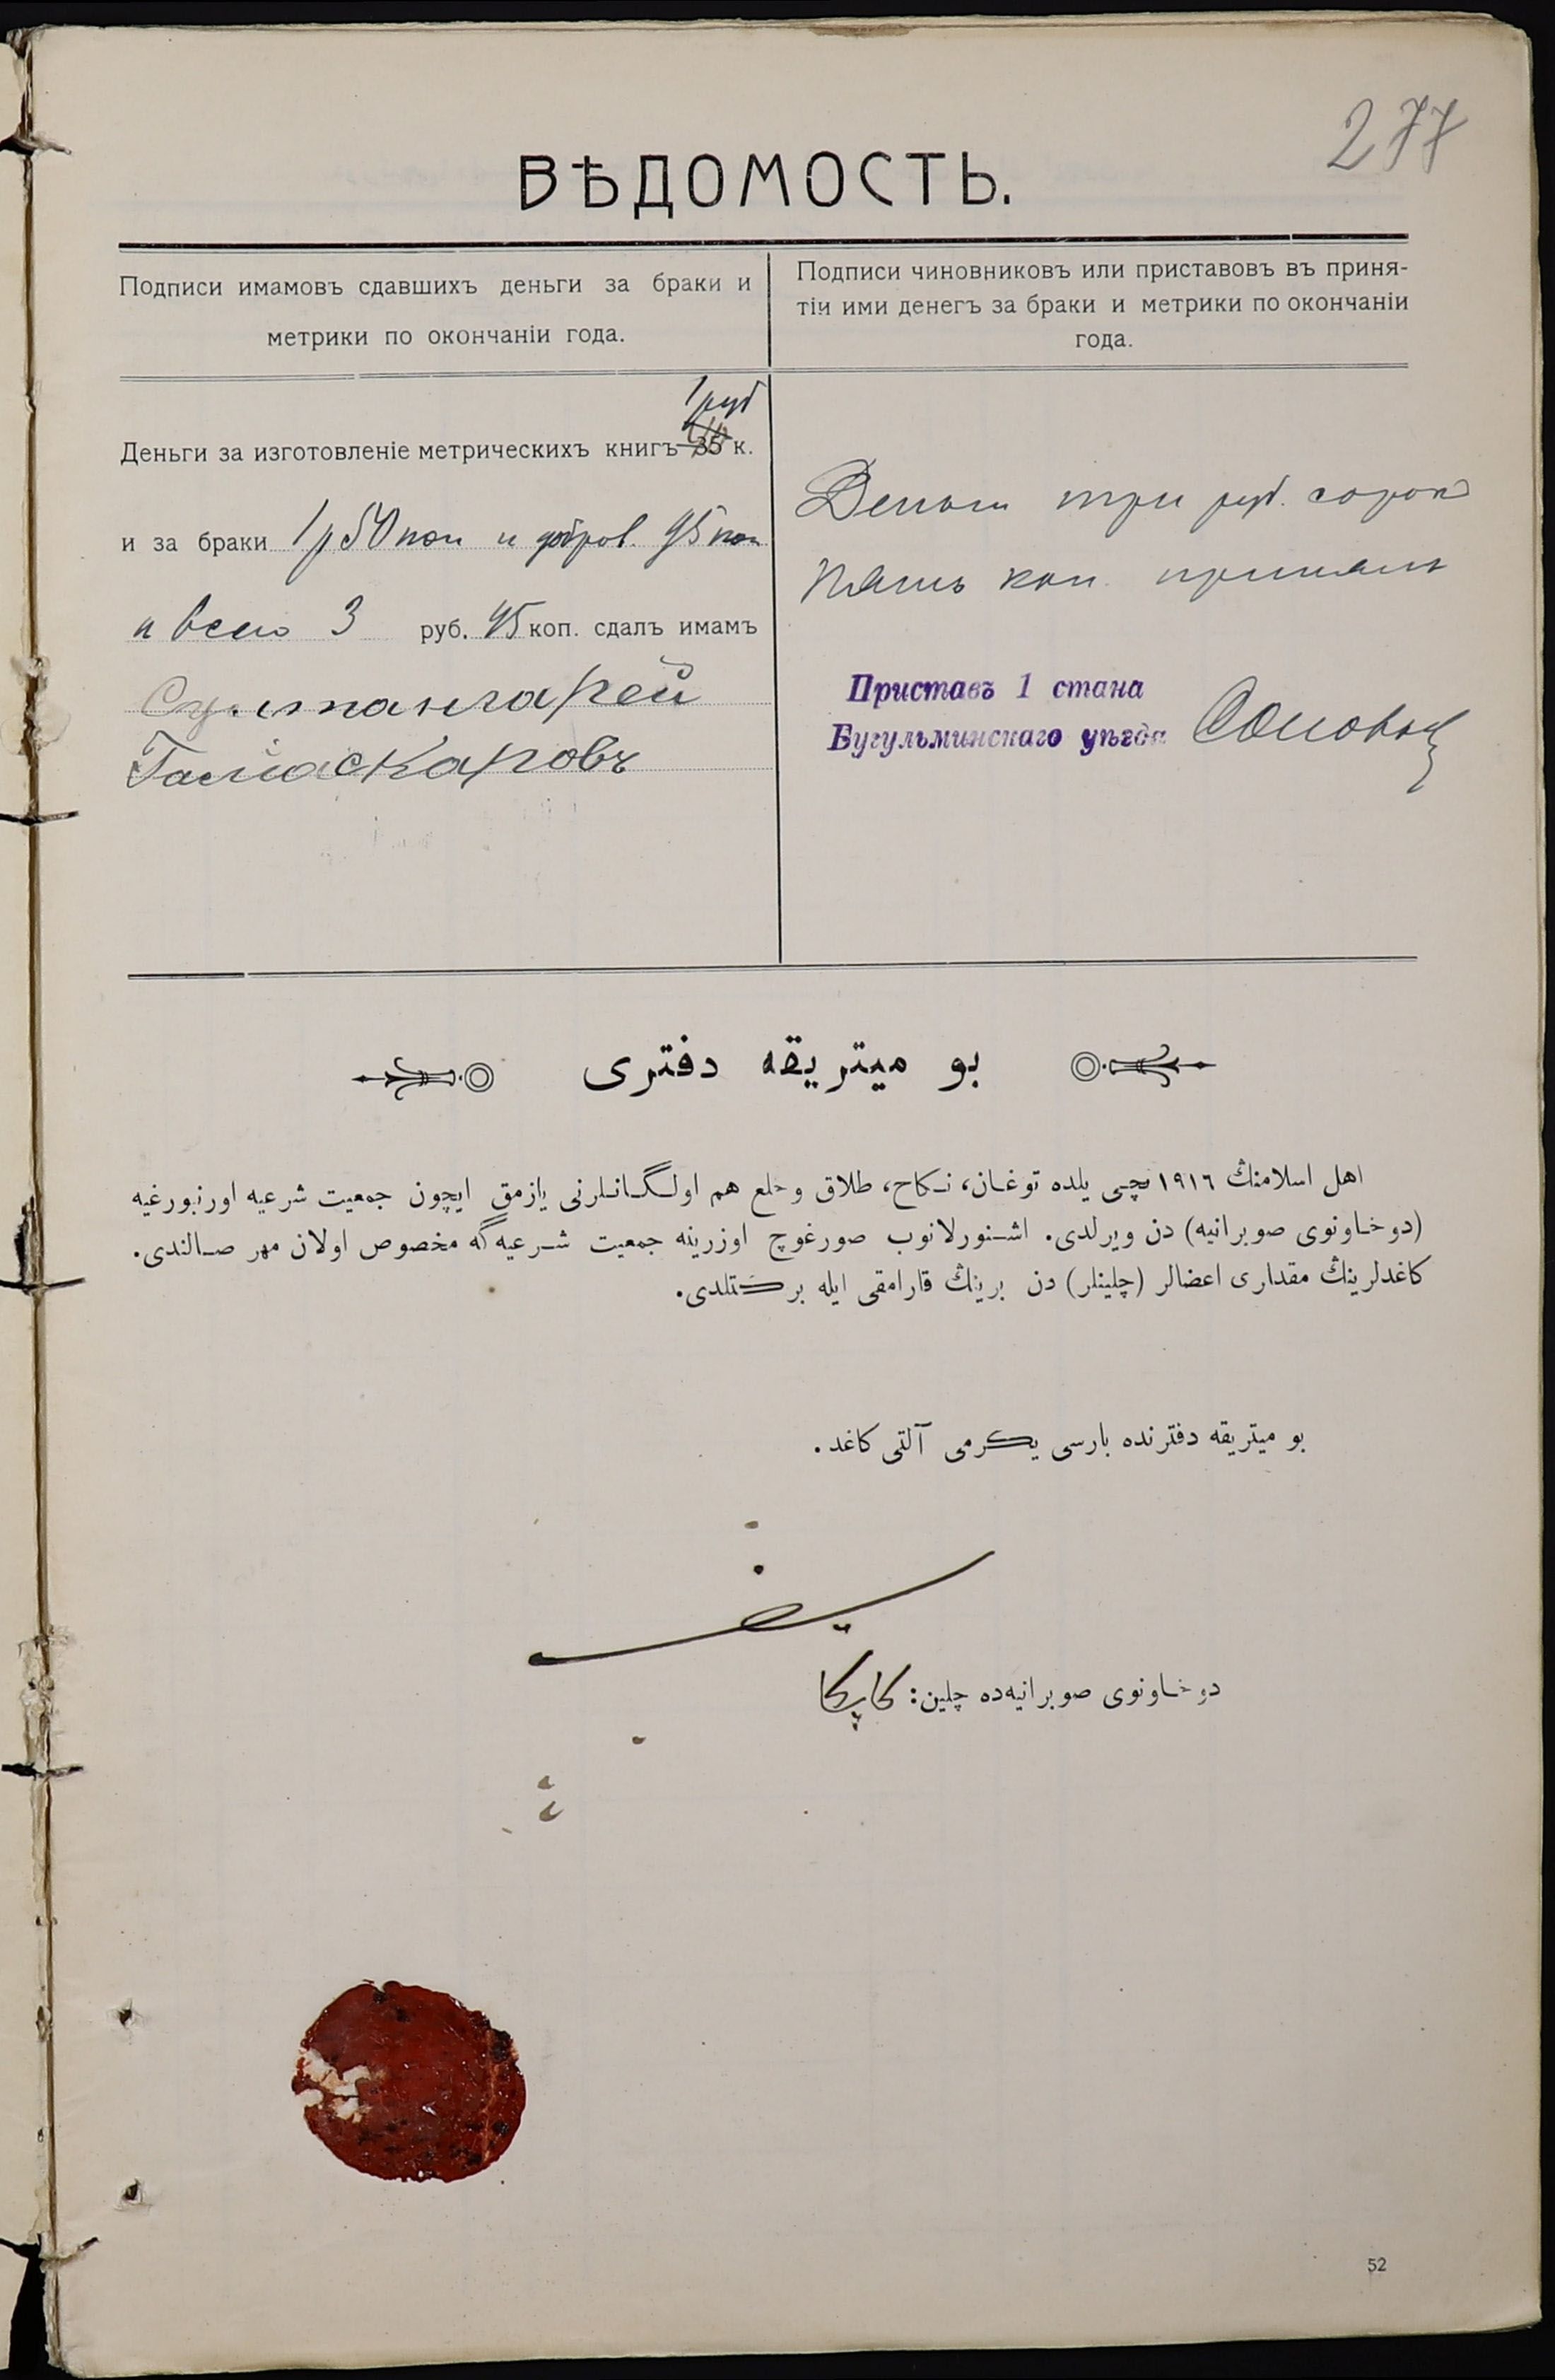 277
ВѢДОМОСТЬ.
Подписи имамовъ сдавшихъ деньги за браки и
метрики по окончаніи года.
Подписи чиновниковъ или приставовъ въ приня-
тіи ими денегъ за браки и метрики по окончаніи
года.
1 руб
Деньги за изготовленіе метрическихъ книгъ 35 к.
и за браки 1 р 50 коп и добров. 95 коп
и всего 3 руб. 45 коп. сдалъ имамъ
Султангарей
Деньги три руб. сорок
пять коп. принялъ
Приставъ 1 стана
Бугульминскаго уѣзда
بو ميتريقه دفترى
اهل اسلامنڭ ١٩١٦ نچى يلده توغان، نكاح، طلاق و خلع هم اولگانلرنى يازمق ايچون جمعيت شرعيه اورنبورغيه
(دوخاونوى صوبرانيه) دن ويرلدى. اشنورلانوب صورغوچ اوزرينه جمعيت شرعيه گه مخصوص اولان مهر صالندى.
كاغدلرينڭ مقدارى اعضالر (چلينلر) دن برينڭ قارامقى ايله بركتلدى.
بو ميتريقه دفترنده بارسى يكرمى آلتى كاغد.
دوخاونوى صوبرانيه‌ده چلين:
52